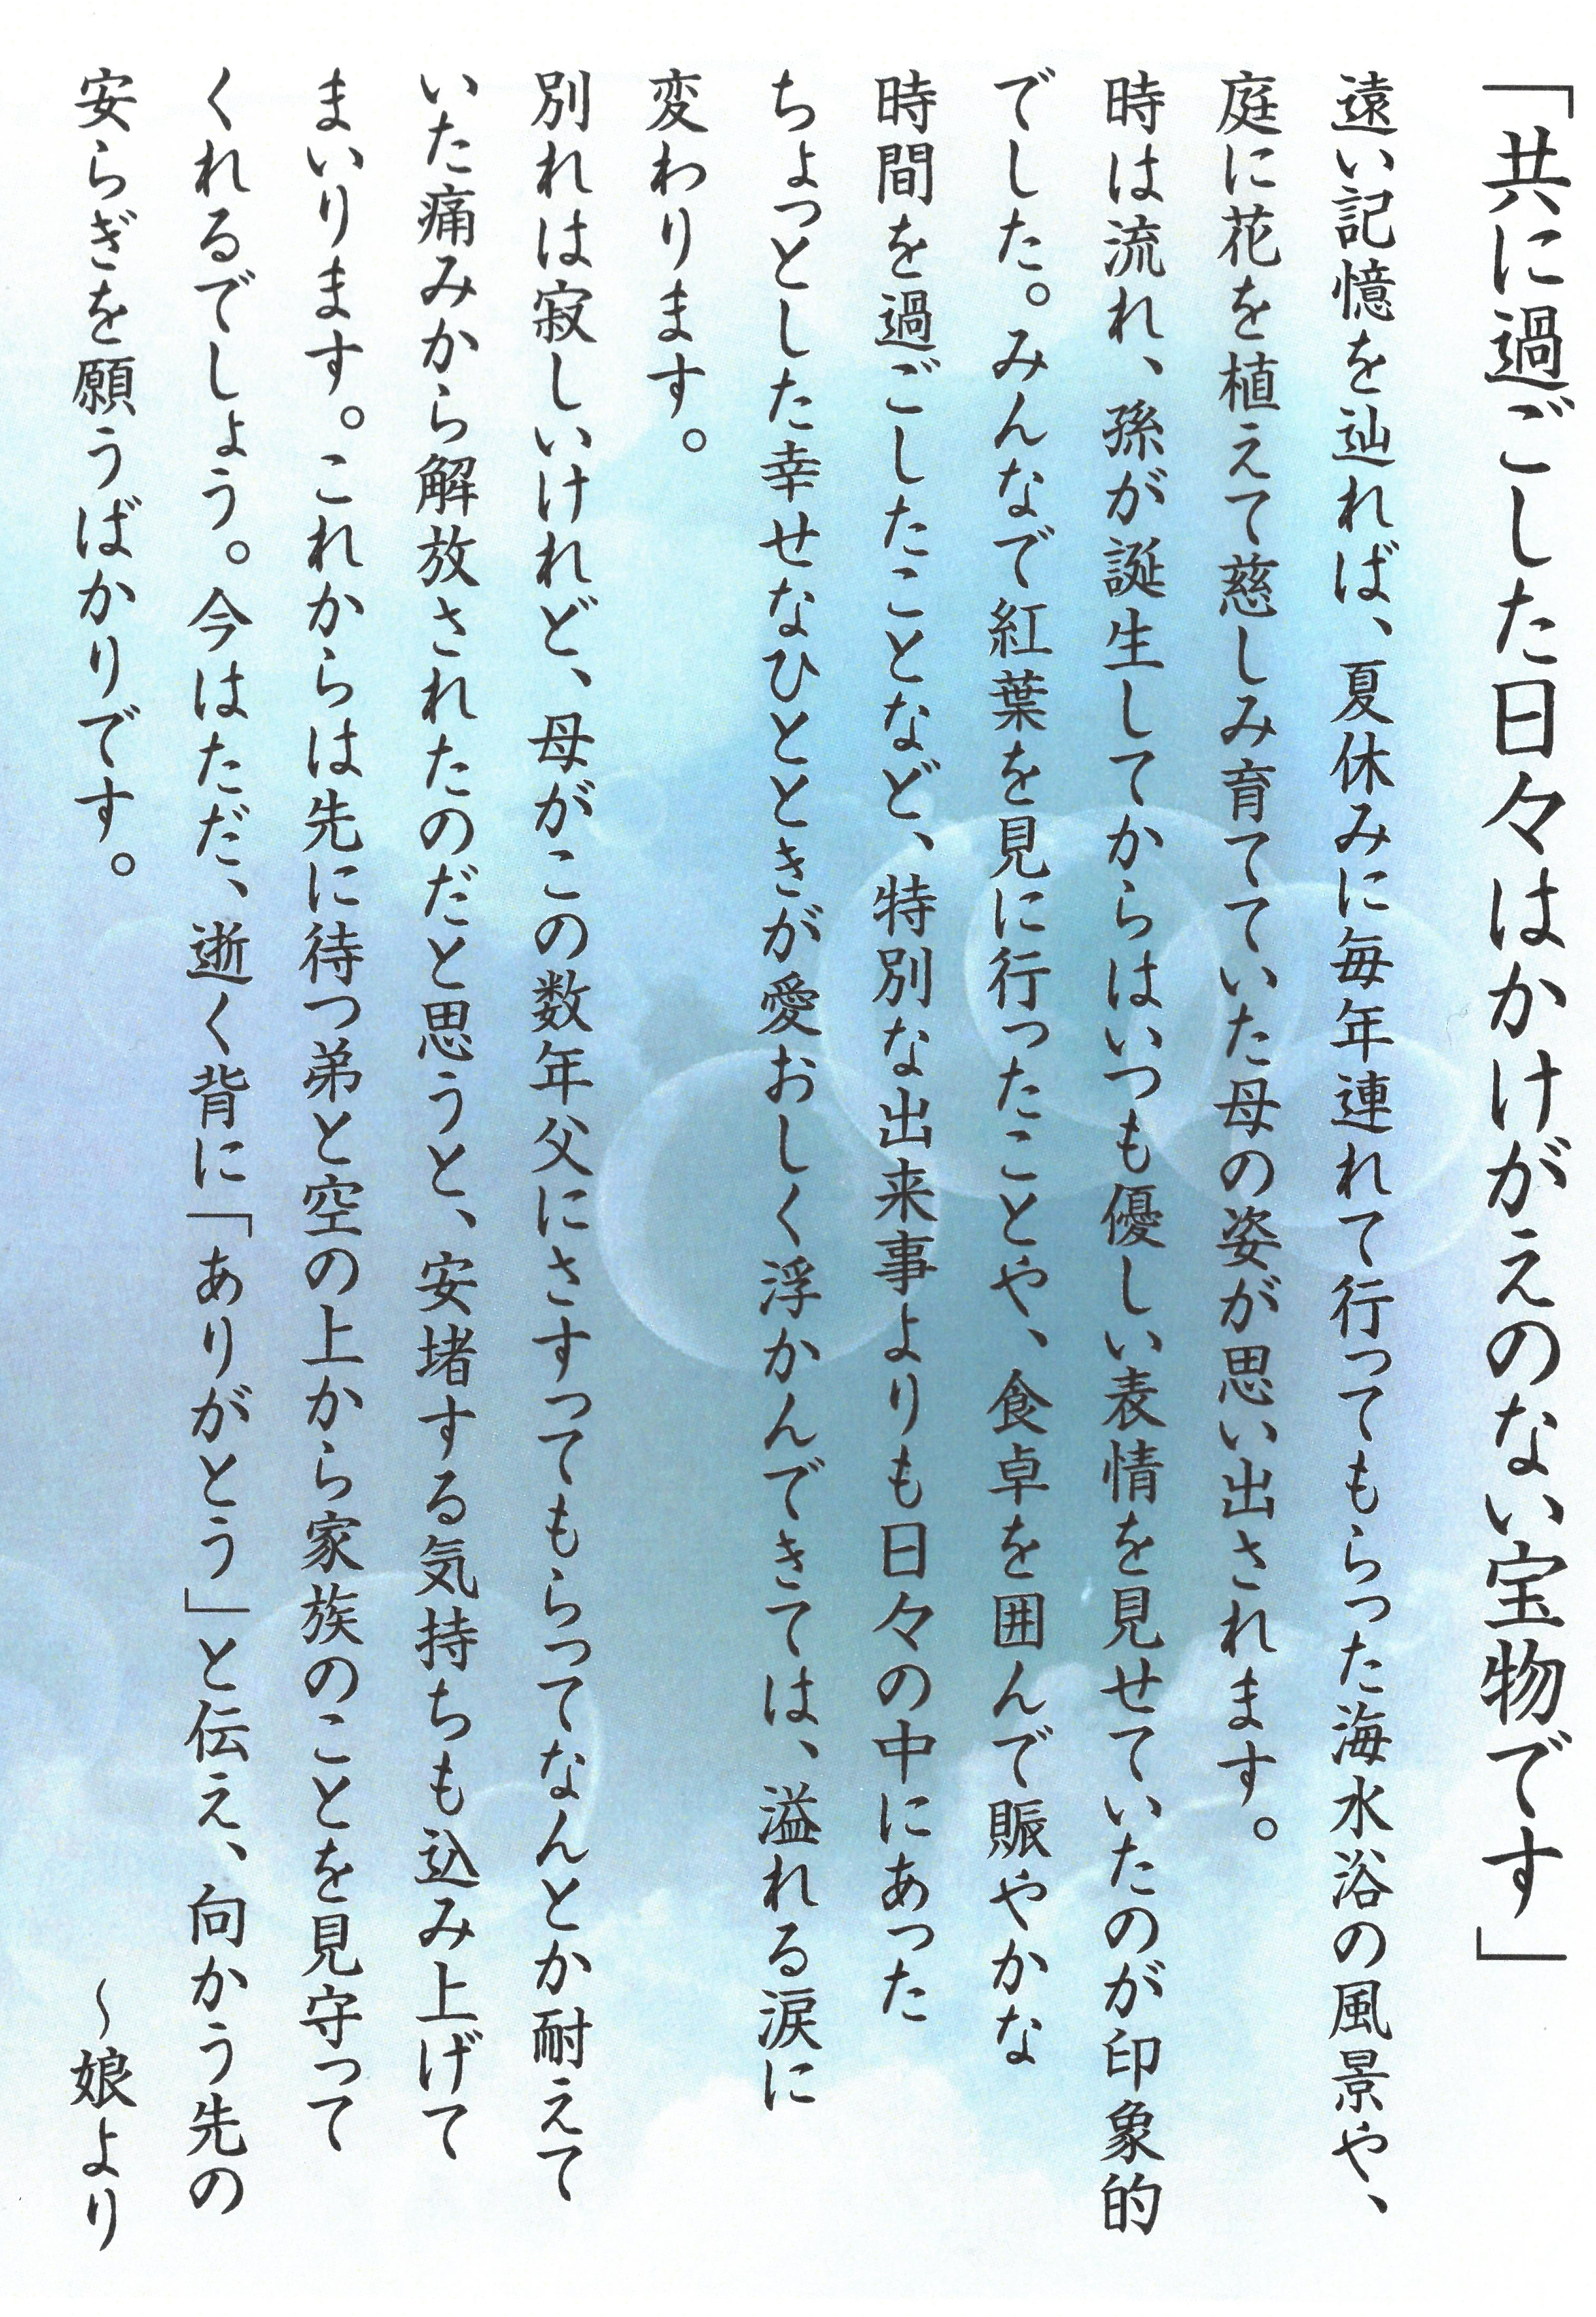 「共に過ごした日々はかけがえのない宝物です」
遠い記憶を辿れば、夏休みに毎年連れて行ってもらった海水浴の風景や、
庭に花を植えて慈しみ育てていた母の姿が思い出されます。
時は流れ、孫が誕生してからはいつも優しい表情を見せていたのが印象的
でした。みんなで紅葉を見に行ったことや、食卓を囲んで賑やかな
時間を過ごしたことなど、特別な出来事よりも日々の中にあった
ちょっとした幸せなひとときが愛おしく浮かんできては、溢れる涙に
変わります。
別れは寂しいけれど、母がこの数年父にさすってもらってなんとか耐えて
いた痛みから解放されたのだと思うと、安堵する気持ちも込み上げて
まいります。これからは先に待つ弟と空の上から家族のことを見守って
くれるでしょう。今はただ、逝く背に「ありがとう」と伝え、向かう先の
安らぎを願うばかりです。
～娘より